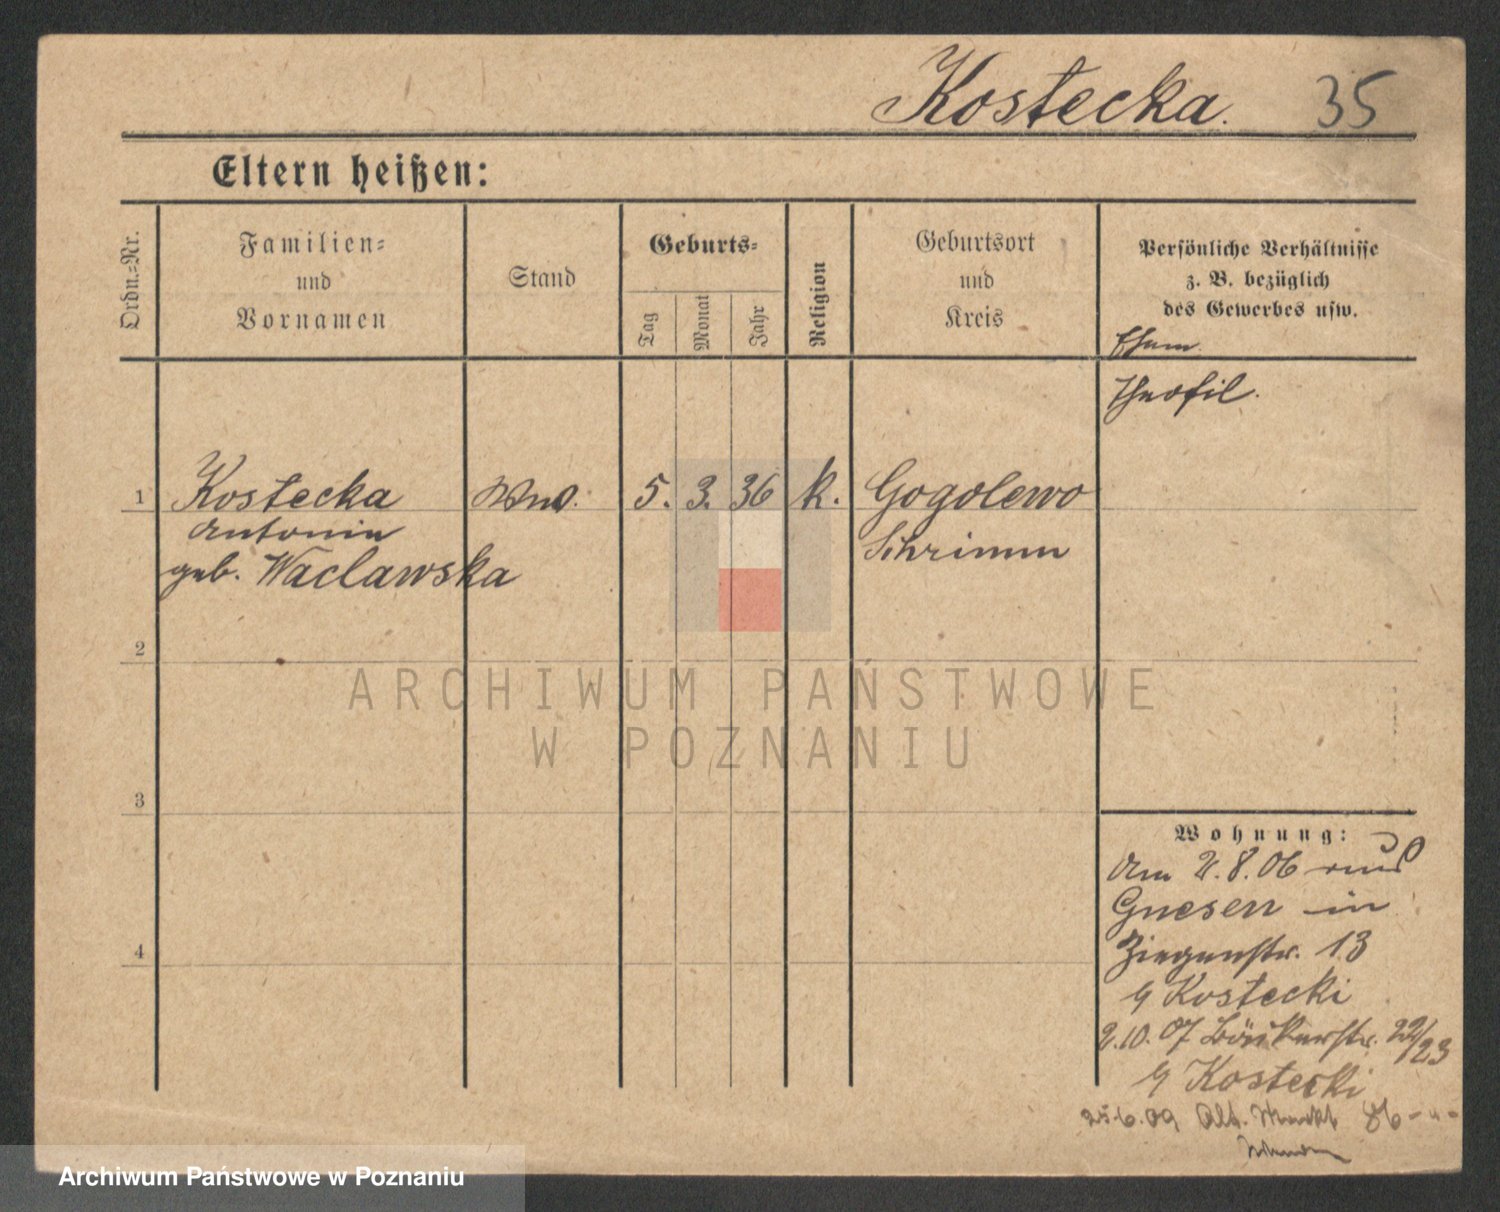 Kostecka. 35
Eltern heißen:
Ordn.-Nr.
Familien-
und
Vornamen
Stand
Geburts-
Tag
Monat
Jahr
Religion
Geburtsort
und
Kreis
Persönliche Verhältnisse
z. B. bezüglich
des Gewerbes usw.
Ehem.
Theofil.
1 Kostecka Wwe. 5. 3. 36 k. Gogolewo
Antonie Schrimm
geb. Waclawska
2
3
4
Wohnung:
Am 2.8.06 aus
Gnesen in
Ziegenstr. 13
b/ Kostecki
2.10.07 Bäckerstr. 22/23
b/ Kostecki
25.6.09 Alt. Markt 86 - " -
ARCHIWUM PAŃSTWOWE
W POZNANIU
Archiwum Państwowe w Poznaniu